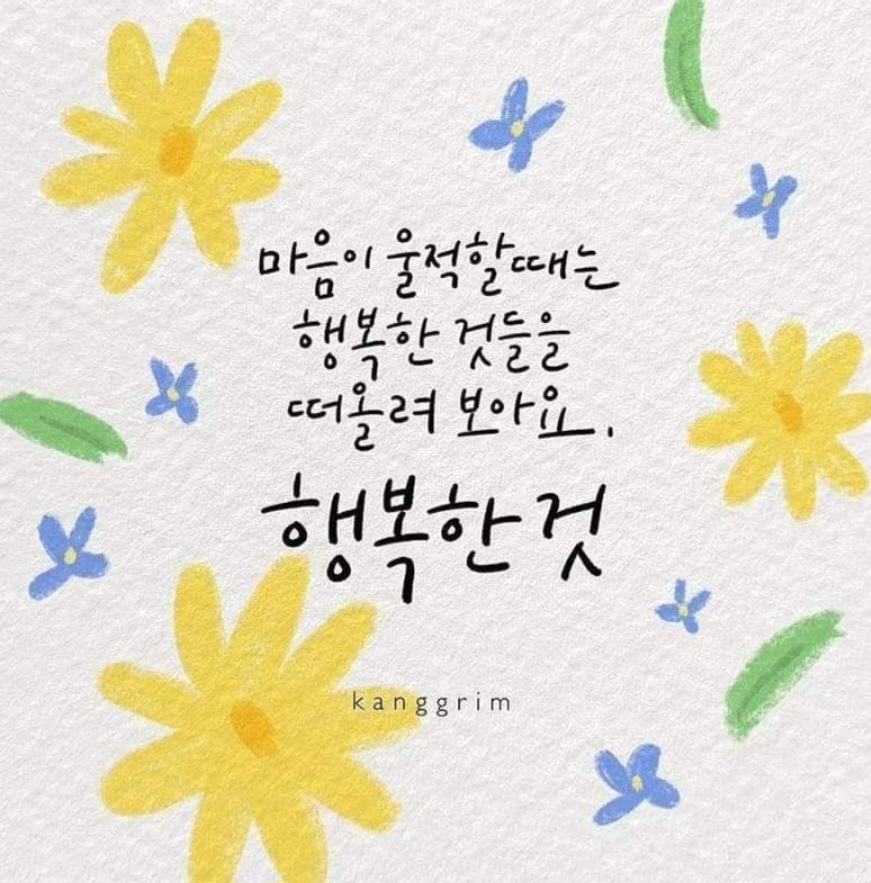 마음이 울적할때는
행복한 것들을
떠올려 보아요.
행복한 것
kanggrim